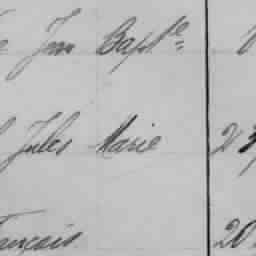 Jean Bapt^te
Jules Marie 23
François 20